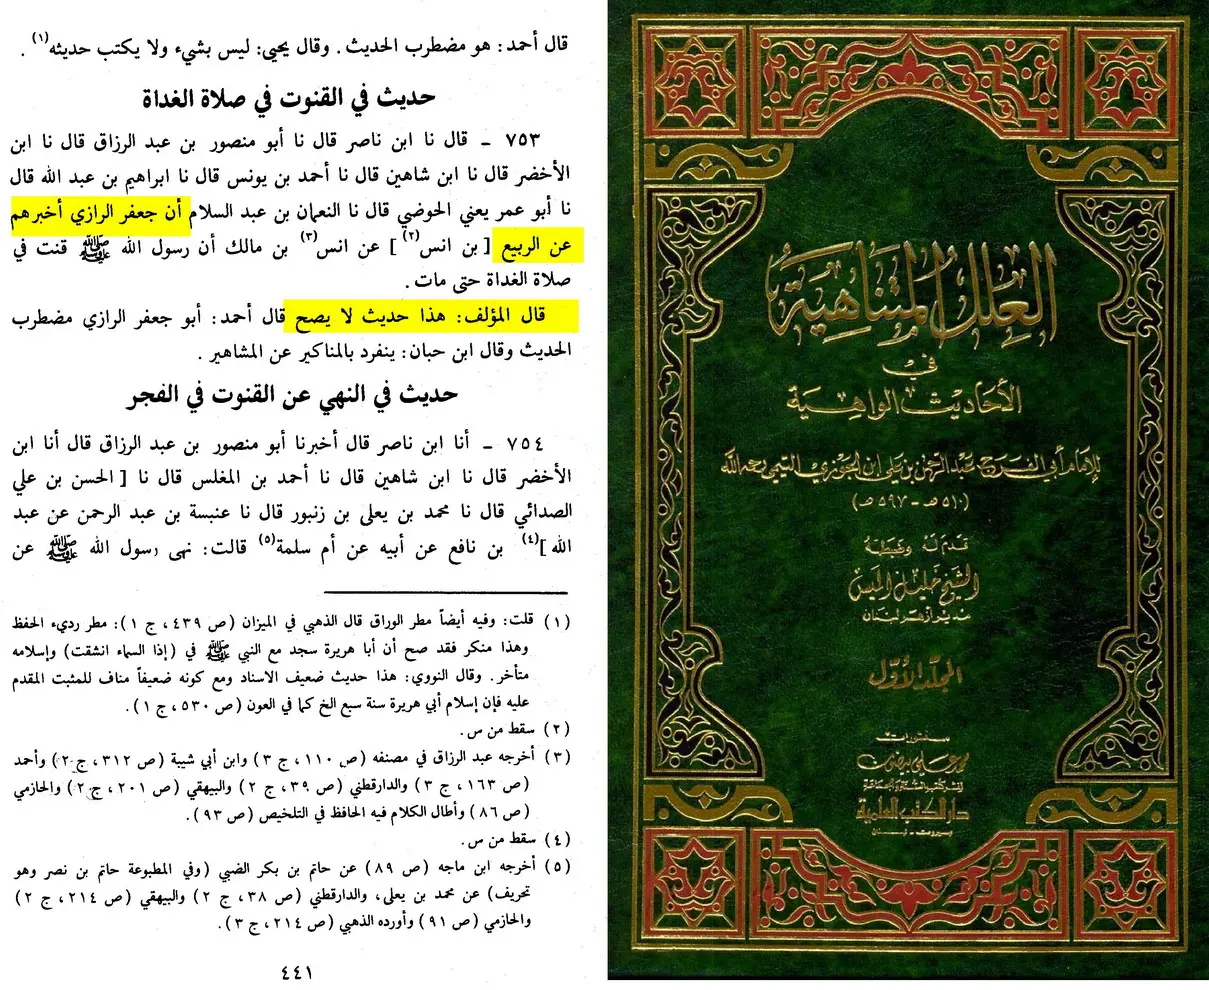 قال أحمد: هو مضطرب الحديث. وقال يحيى: ليس بشيء ولا يكتب حديثه(١).
حديث في القنوت في صلاة الغداة
٧٥٣ ـ قال نا ابن ناصر قال نا أبو منصور بن عبد الرزاق قال نا ابن
الأخضر قال نا ابن شاهين قال نا أحمد بن يونس قال نا ابراهيم بن عبد الله قال
نا أبو عمر يعني الحوضي قال نا النعمان بن عبد السلام أن جعفر الرازي أخبرهم
عن الربيع [ بن انس(٢) ] عن انس(٣) بن مالك أن رسول الله ﷺ قنت في
صلاة الغداة حتى مات.
قال المؤلف: هذا حديث لا يصح قال أحمد: أبو جعفر الرازي مضطرب
الحديث وقال ابن حبان: ينفرد بالمناكير عن المشاهير.
حديث في النهي عن القنوت في الفجر
٧٥٤ ـ أنا ابن ناصر قال أخبرنا أبو منصور بن عبد الرزاق قال أنا ابن
الأخضر قال نا ابن شاهين قال نا أحمد بن المغلس قال نا [ الحسن بن علي
الصدائي قال نا محمد بن يعلى بن زنبور قال نا عنبسة بن عبد الرحمن عن عبد
الله ](٤) بن نافع عن أبيه عن أم سلمة(٥) قالت: نهى رسول الله ﷺ عن
(١) قلت: وفيه أيضاً مطر الوراق قال الذهبي في الميزان (ص ٤٣٩، ج ١): مطر رديء الحفظ
وهذا منكر فقد صح أن أبا هريرة سجد مع النبي ﷺ في (إذا السماء انشقت) وإسلامه
متأخر. وقال النووي: هذا حديث ضعيف الاسناد ومع كونه ضعيفاً مناف للمثبت المقدم
عليه فإن إسلام أبي هريرة سنة سبع الخ كما في العون (ص ٥٣٠، ج ١).
(٢) سقط من س.
(٣) أخرجه عبد الرزاق في مصنفه (ص ١١٠، ج ٣) وابن أبي شيبة (ص ٣١٢، ج ٢) وأحمد
(ص ١٦٣، ج ٣) والدارقطني (ص ٣٩، ج ٢) والبيهقي (ص ٢٠١، ج ٢) والحازمي
(ص ٨٦) وأطال الكلام فيه الحافظ في التلخيص (ص ٩٣).
(٤) سقط من س.
(٥) أخرجه ابن ماجه (ص ٨٩) عن حاتم بن بكر الضبي (وفي المطبوعة حاتم بن نصر وهو
تحريف) عن محمد بن يعلى، والدارقطني (ص ٣٨، ج ٢) والبيهقي (ص ٢١٤، ج ٢)
والحازمي (ص ٩١) وأورده الذهبي (ص ٢١٤، ج ٣).
٤٤١
العلل المتناهية
في
الأحاديث الواهية
للإمام أبي الفرج عبد الرحمن بن علي ابن الجوزي التيمي رحمه الله
(٥١٠ هـ - ٥٩٧ هـ)
قدم له وضبطه
الشيخ خليل الميس
مدير أزهر لبنان
المجلد الأول
منشورات
محمد علي بيضون
لنشر كتب السنة والجماعة
دار الكتب العلمية
بيروت - لبنان